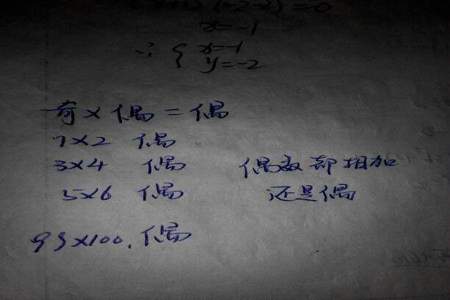 x=-1
∴ { x=-1
y=-2
奇×偶=偶
1×2 偶
3×4 偶 偶数都相加
5×6 偶 还是偶
99×100. 偶